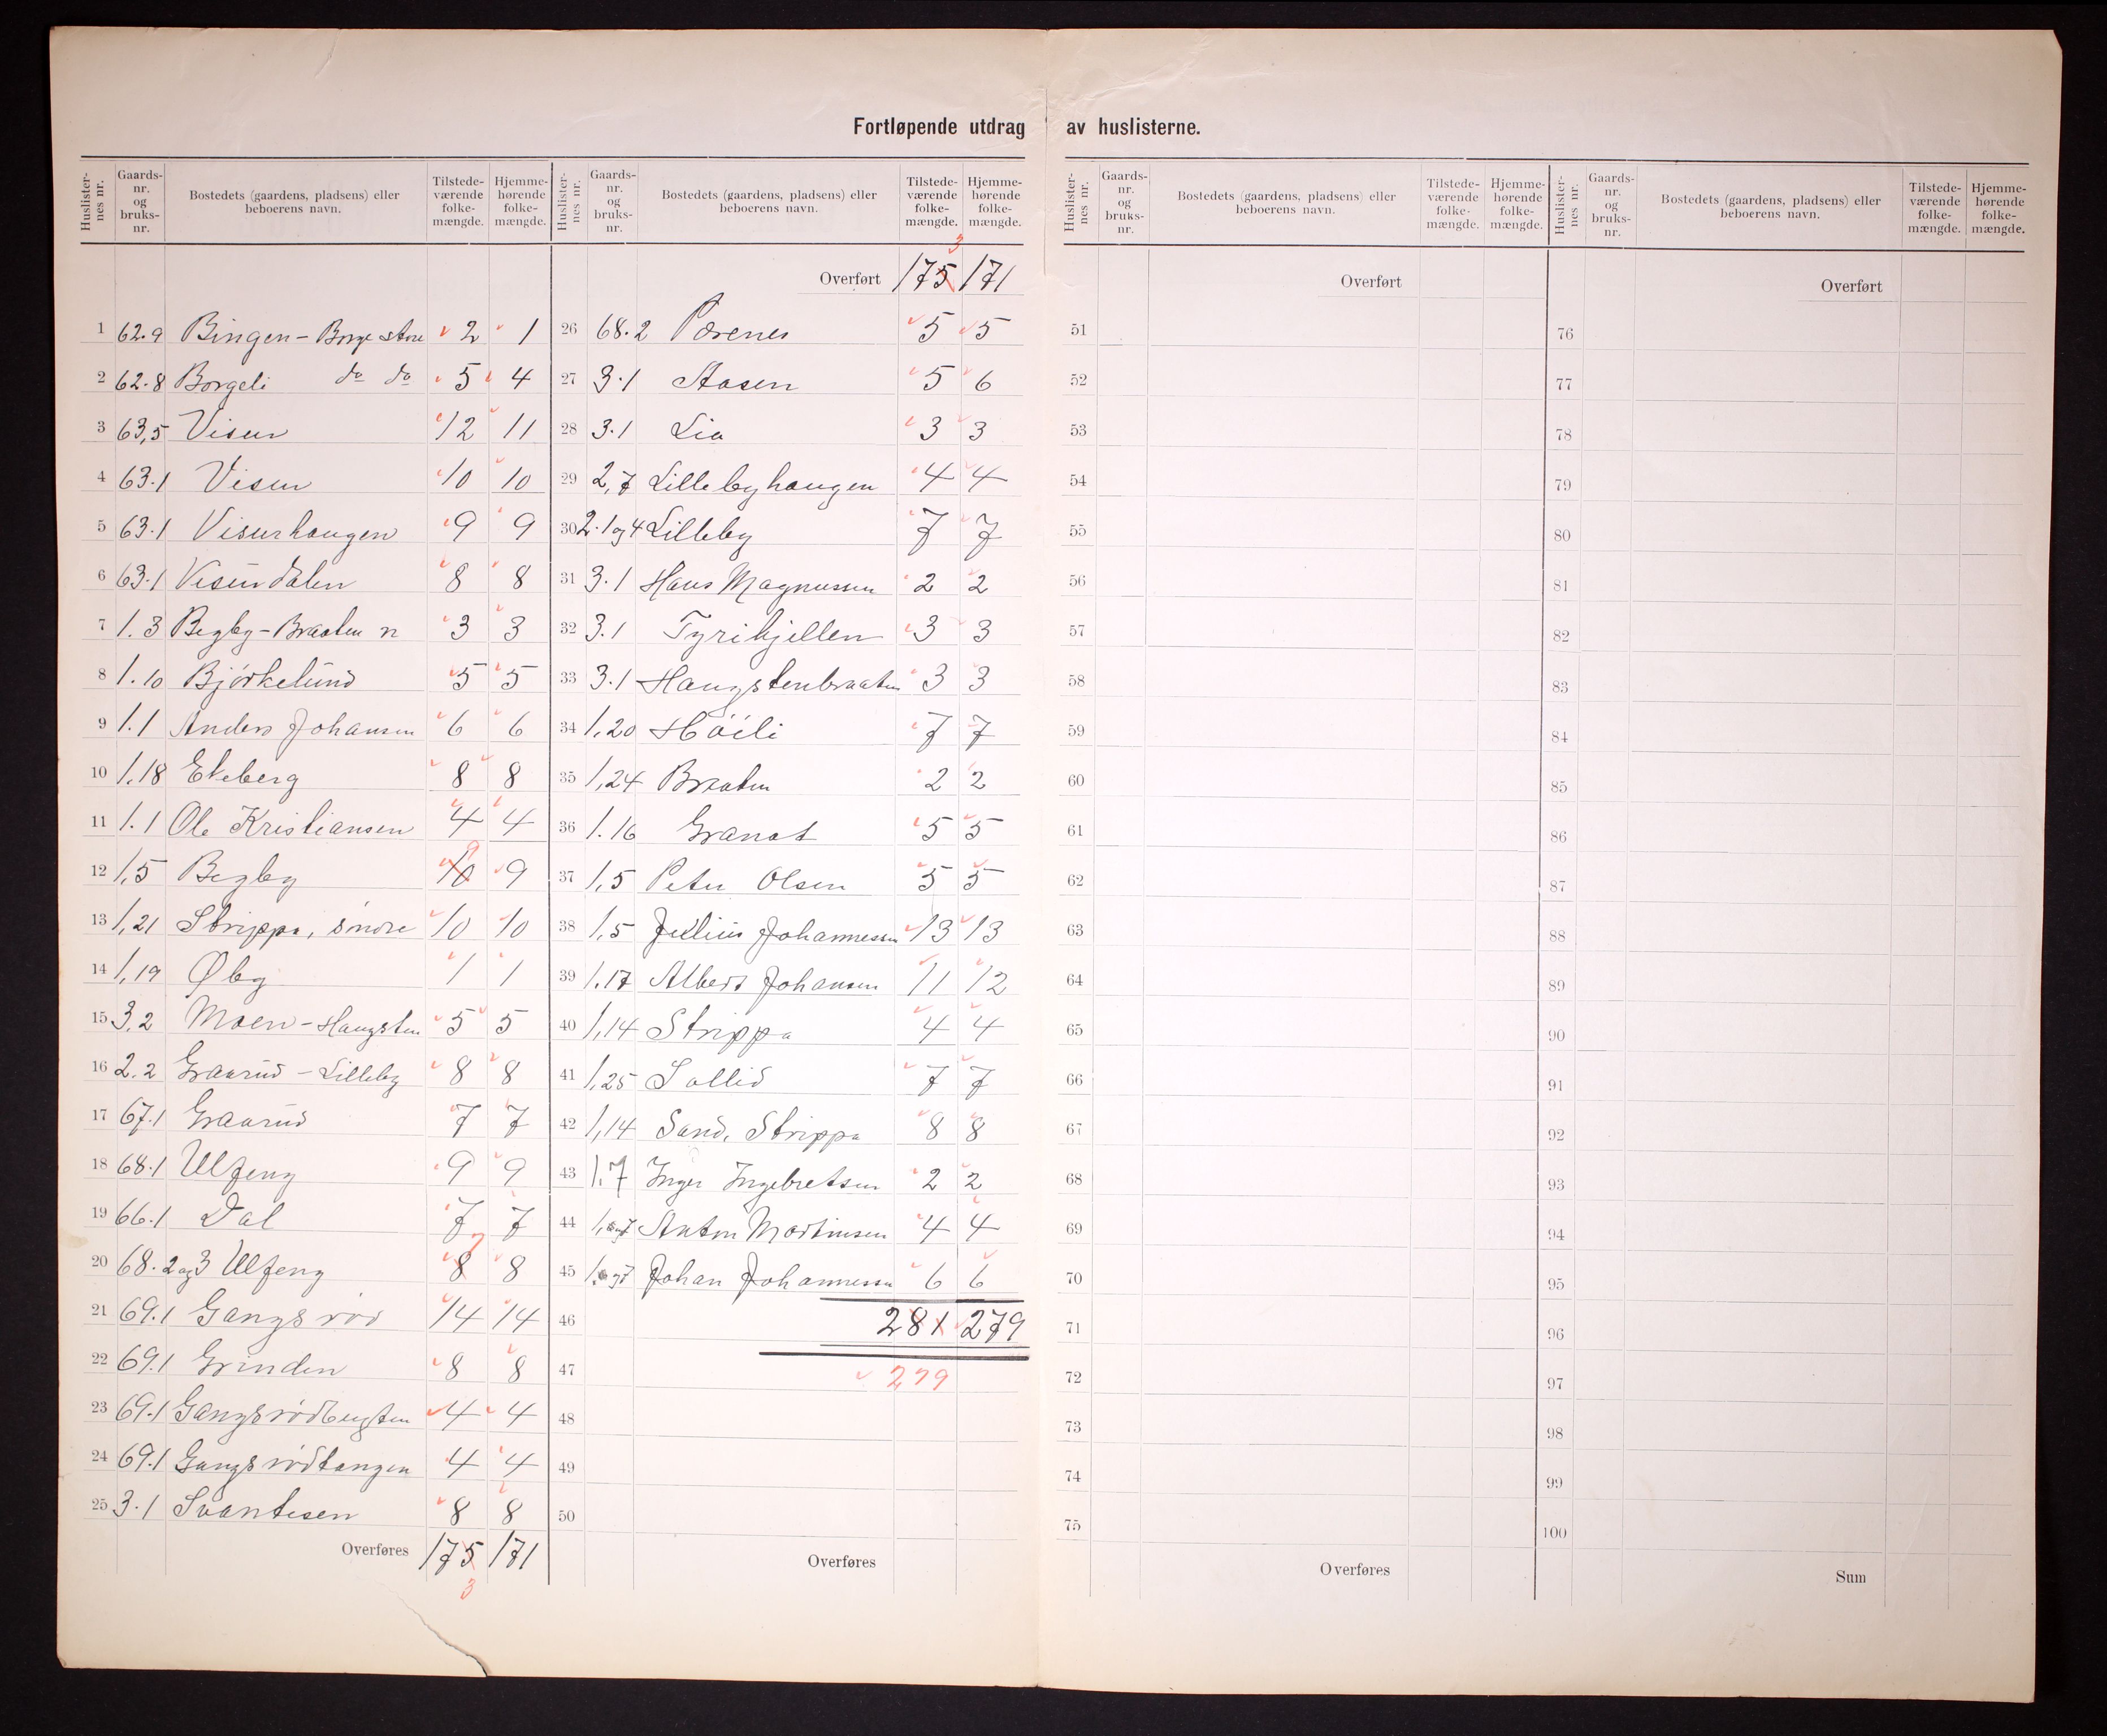 Fortløpende utdrag av huslisterne.
Huslisternes nr. Gaards-nr. og bruks-nr. Bostedets (gaardens, pladsens) eller beboerens navn. Tilstedeværende folkemængde. Hjemmehørende folkemængde.
1 62.9 Bingen - Borge store 2 1
2 62.8 Borgeli do do 5 4
3 63,5 Visur 12 11
4 63.1 Visur 10 10
5 63.1 Visurhaugen 9 9
6 63.1 Visurdalen 8 8
7 1.3 Begby - Braaten n 3 3
8 1.10 Bjørkelund 5 5
9 1.1 Anders Johansen 6 6
10 1.18 Ekeberg 8 8
11 1.1 Ole Kristiansen 4 4
12 1,5 Begby 10 9 9
13 1,21 Strippa, søndre 10 10
14 1,19 Øby 1 1
15 3,2 Moen - Haugsten 5 5
16 2.2 Graarud - Lilleby 8 8
17 67.1 Graarud 7 7
18 68.1 Ulfeng 9 9
19 66.1 Dal 7 7
20 68.2 og 3 Ulfeng 8 7 8
21 69.1 Gangsrød 14 14
22 69.1 Grinden 8 8
23 69.1 Gangsrødbugten 4 4
24 69.1 Gangsrødtangen 4 4
25 3.1 Svantesen 8 8
Overføres 175 171
3
Huslisternes nr. Gaards-nr. og bruks-nr. Bostedets (gaardens, pladsens) eller beboerens navn. Tilstedeværende folkemængde. Hjemmehørende folkemængde.
3
Overført 175 171
26 68.2 Pærenes 5 5
27 3.1 Aasen 5 6
28 3.1 Lia 3 3
29 2,7 Lillebyhaugen 4 4
30 2.1 og 4 Lilleby 7 7
31 3.1 Hans Magnussen 2 2
32 3.1 Tyrihjellen 3 3
33 3.1 Haugstenbraaten 3 3
34 1,20 Höili 7 7
35 1,24 Braaten 2 2
36 1.16 Granat 5 5
37 1,5 Peter Olsen 5 5
38 1,5 Julius Johannessen 13 13
39 1.17 Albert Johansen 11 12
40 1,14 Strippa 4 4
41 1,25 Sollid 7 7
42 1,14 Sand, Strippa 8 8
43 1.7 Inger Ingebretsen 2 2
44 Anton Martinsen 4 4
45 Johan Johannessen 6 6
46 281 279
47 279
48
49
50
Overføres
Huslisternes nr. Gaards-nr. og bruks-nr. Bostedets (gaardens, pladsens) eller beboerens navn. Tilstedeværende folkemængde. Hjemmehørende folkemængde.
Overført
51
52
53
54
55
56
57
58
59
60
61
62
63
64
65
66
67
68
69
70
71
72
73
74
75
Overføres
Huslisternes nr. Gaards-nr. og bruks-nr. Bostedets (gaardens, pladsens) eller beboerens navn. Tilstedeværende folkemængde. Hjemmehørende folkemængde.
Overført
76
77
78
79
80
81
82
83
84
85
86
87
88
89
90
91
92
93
94
95
96
97
98
99
100
Sum